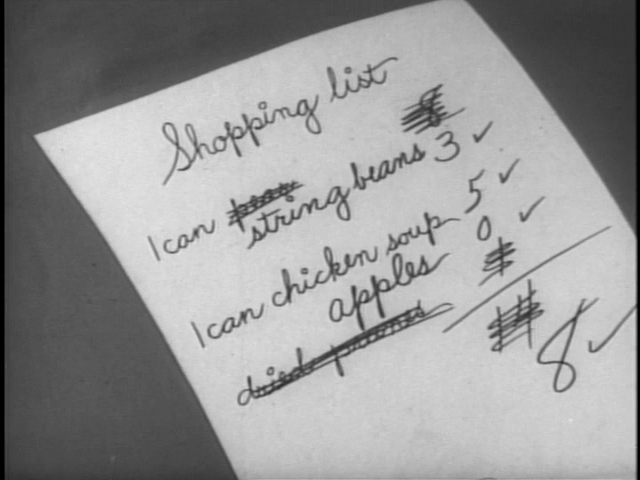 Shopping list
1 can string beans 3 ✓
1 can chicken soup 5 ✓
apples 0 ✓
dried prunes
8 ✓